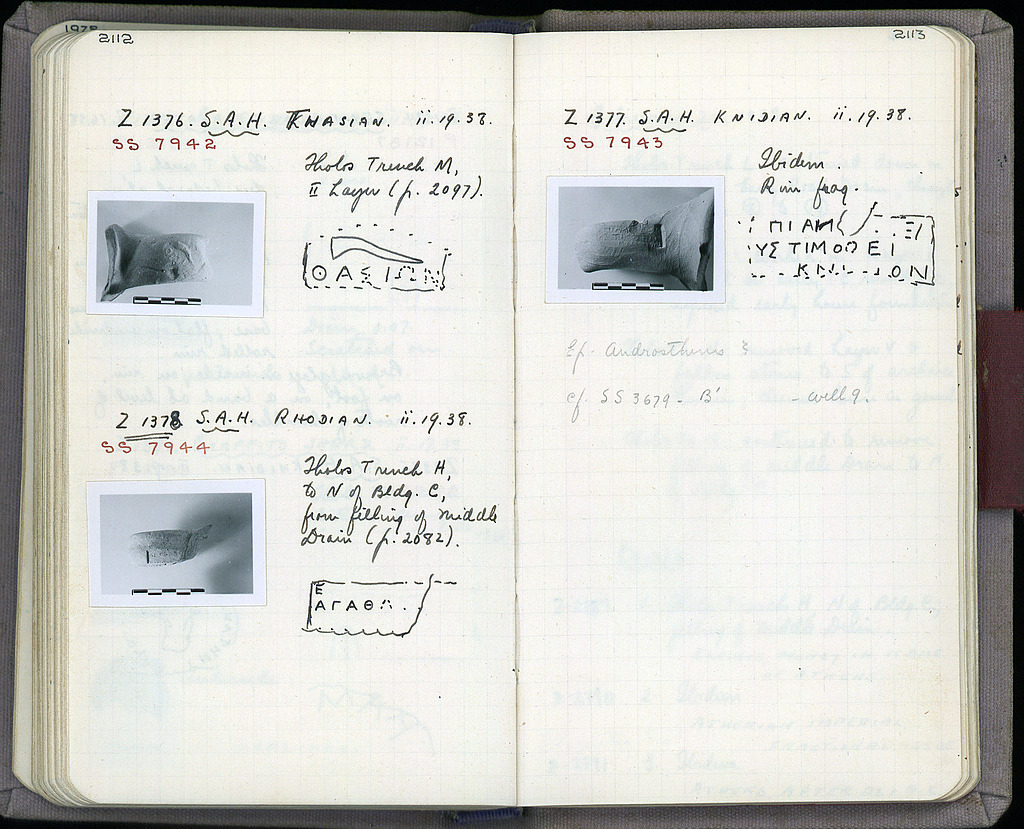 2112
Z 1376. S.A.H. THASIAN. ii.19.38.
SS 7942
Tholos Trench M,
II Layer (p. 2097).
ΘΑΣΙΩΝ
Z 1378 S.A.H. RHODIAN. ii.19.38.
SS 7944
Tholos Trench H,
to N of Bldg. C,
from filling of Middle
Drain (p. 2082).
Ε
ΑΓΑΘΩ.
2113
Z 1377. S.A.H. KNIDIAN. ii.19.38.
SS 7943
Ibidem.
Rim frag.
ΚΝΙ ΟΝ
cf. SS 3679 - B' - well 9.